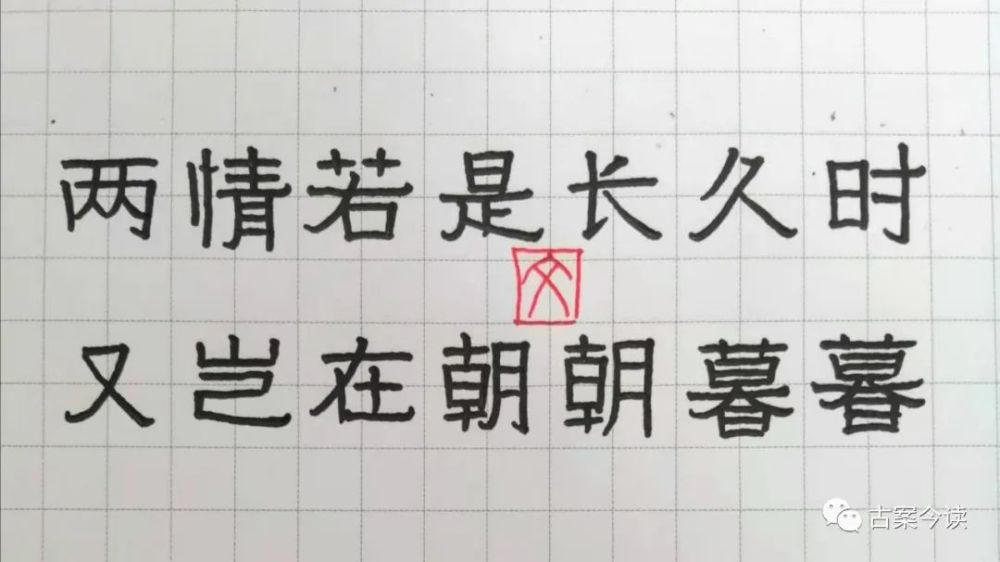 两情若是长久时
文
又岂在朝朝暮暮
古案今读